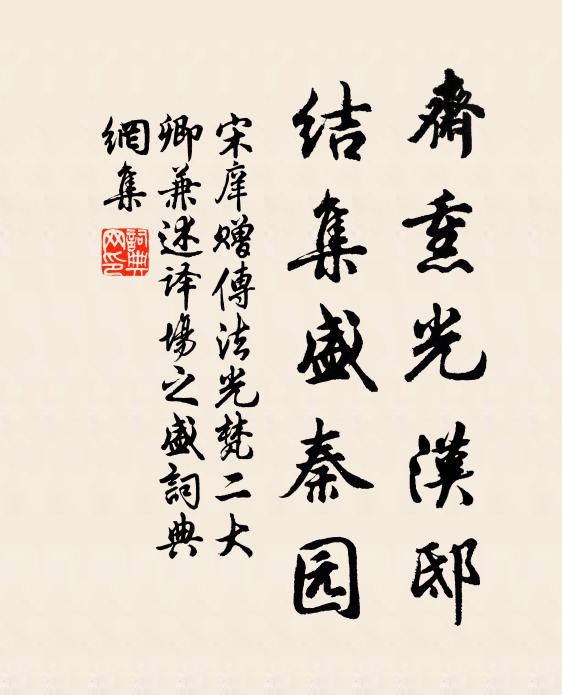 齋熏光漢邸
结集盛秦园
宋庠赠傳法光梵二大
卿兼述译場之盛詞典
網集
詞典網印